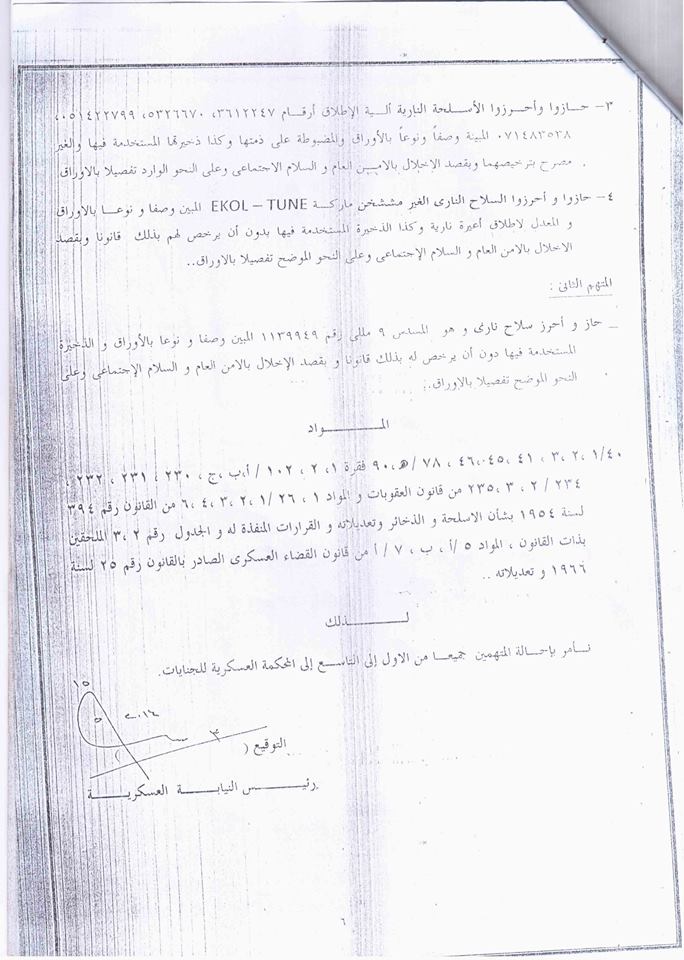 ٣– حازوا وأحرزوا الأسلحة النارية ألية الإطلاق أرقام ٣٦١٢٢٤٧، ٥٣٢٦٦٧٠، ٠٥١٤٢٢٧٩٩،
٠٧١٤٨٣٥٣٨ المبينة وصفاً ونوعاً بالأوراق والمضبوطة على ذمتها وكذا ذخيرتها المستخدمة فيها والغير
مصرح بترخيصهما وبقصد الإخلال بالامن العام و السلام الاجتماعى وعلى النحو الوارد تفصيلا بالاوراق .
٤– حازوا و أحرزوا السلاح النارى الغير مششخن ماركة EKOL – TUNE المبين وصفا و نوعا بالاوراق
و المعدل لاطلاق أعيرة نارية وكذا الذخيرة المستخدمة فيها بدون أن يرخص لهم بذلك قانونا وبقصد
الاخلال بالامن العام و السلام الإجتماعى وعلى النحو الموضح تفصيلا بالاوراق..
المتهم الثانى :
_ حاز و أحرز سلاح نارى و هو المسدس ٩ مللي رقم ١١٣٩٩٤٩ المبين وصفا و نوعا بالأوراق و الذخيرة
المستخدمة فيها دون أن يرخص له بذلك قانونا و بقصد الإخلال بالامن العام و السلام الإجتماعى وعلى
النحو الموضح تفصيلا بالاوراق.
المــــــــواد
١/٤٠ ،٢ ،٣ ، ٤١ ،٤٥ ،٤٦ ، ٧٨ /هـ ،٩٠ فقرة ١، ٢ ، ١٠٢ / أ،ب ،ج ، ٢٣٠ ، ٢٣١ ، ٢٣٢ ،
٢٣٤ / ٢ ، ٣ ،٢٣٥ من قانون العقوبات و المواد ١ ، ١/٢٦ ،٢ ،٣ ،٤ ،٦ من القانون رقم ٣٩٤
لسنة ١٩٥٤ بشأن الاسلحة و الذخائر وتعديلاته و القرارات المنفذة له و الجدول رقم ٢ ،٣ الملحقين
بذات القانون ، المواد ٥ /أ ، ب ، ٧ / أ من قانون القضاء العسكرى الصادر بالقانون رقم ٢٥ لسنة
١٩٦٦ و تعديلاته ..
لــــــــذلك
نــأمر بإحالة المتهمين جميعـا من الاول إلى التاسع إلى المحكمة العسكرية للجنايات .
١٥
٥ ٢٠١٤
٣
التوقيع ( )
رئيــس النيابــة العسكريــــة
٦